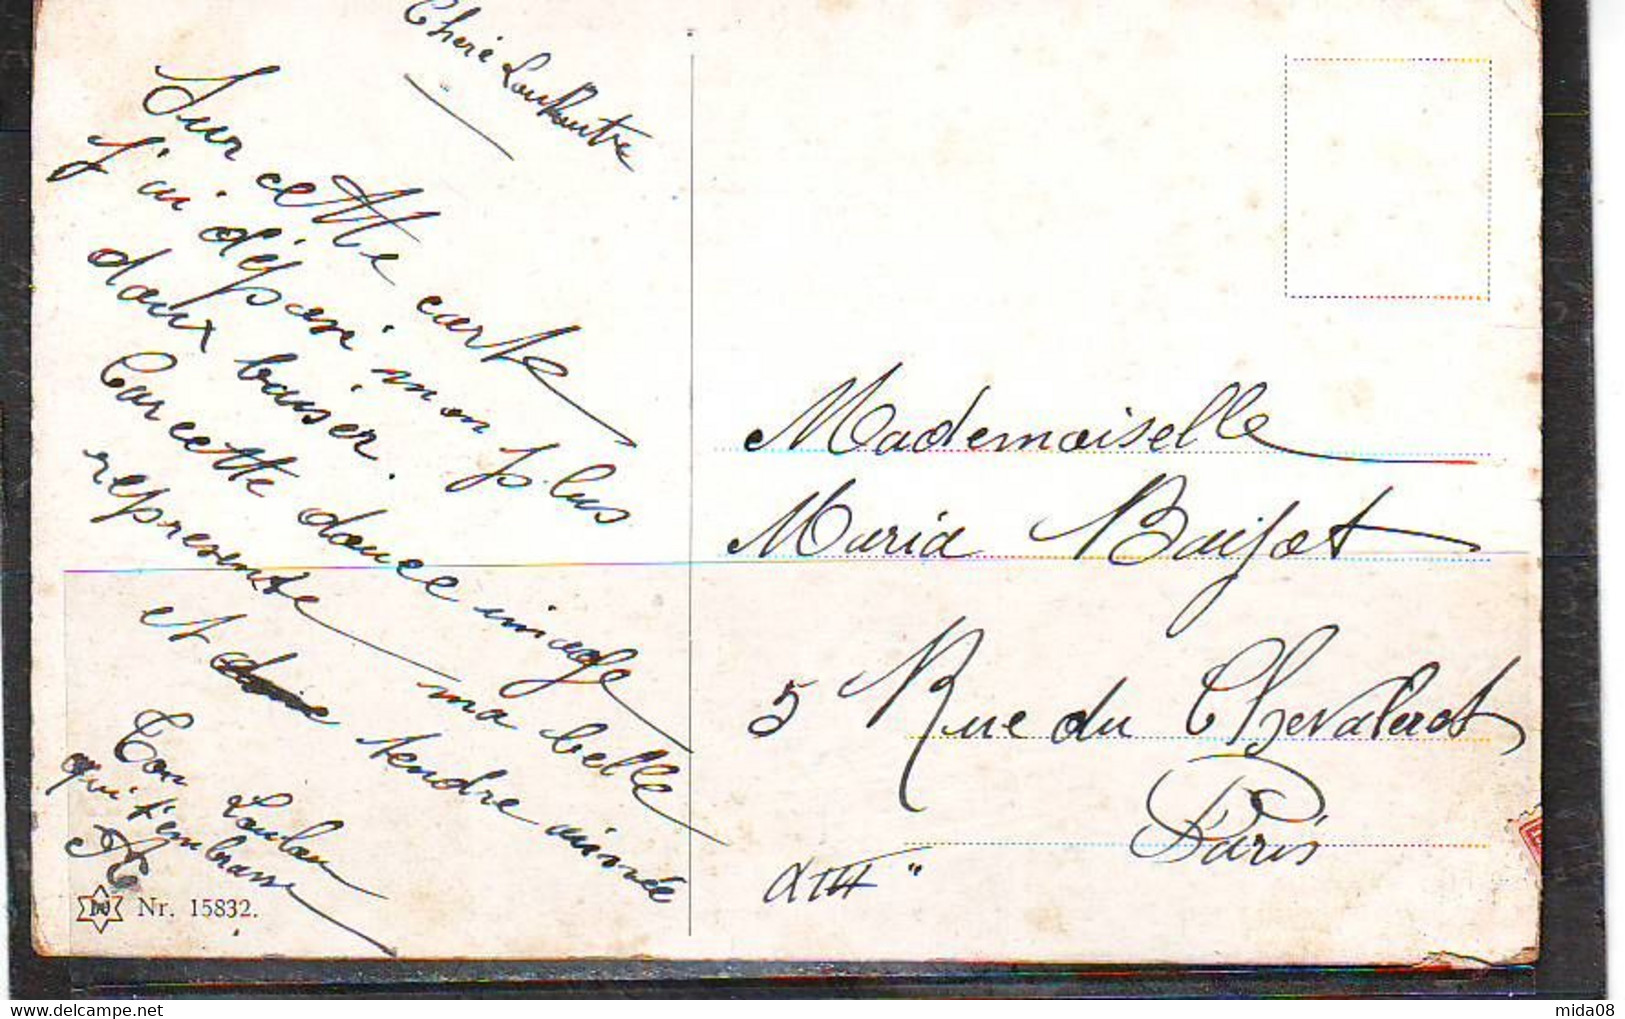 Cheri Loukoutre
Sur cette carte
J'ai déposé mon plus
doux baiser.
Car cette douce image
represente ma belle
et tendre aimée
Ton Loulou
qui t'embrasse
Nr. 15832.
Mademoiselle
Maria Baijot
5 Rue du Chevaleret
Paris
XIII "
mida08